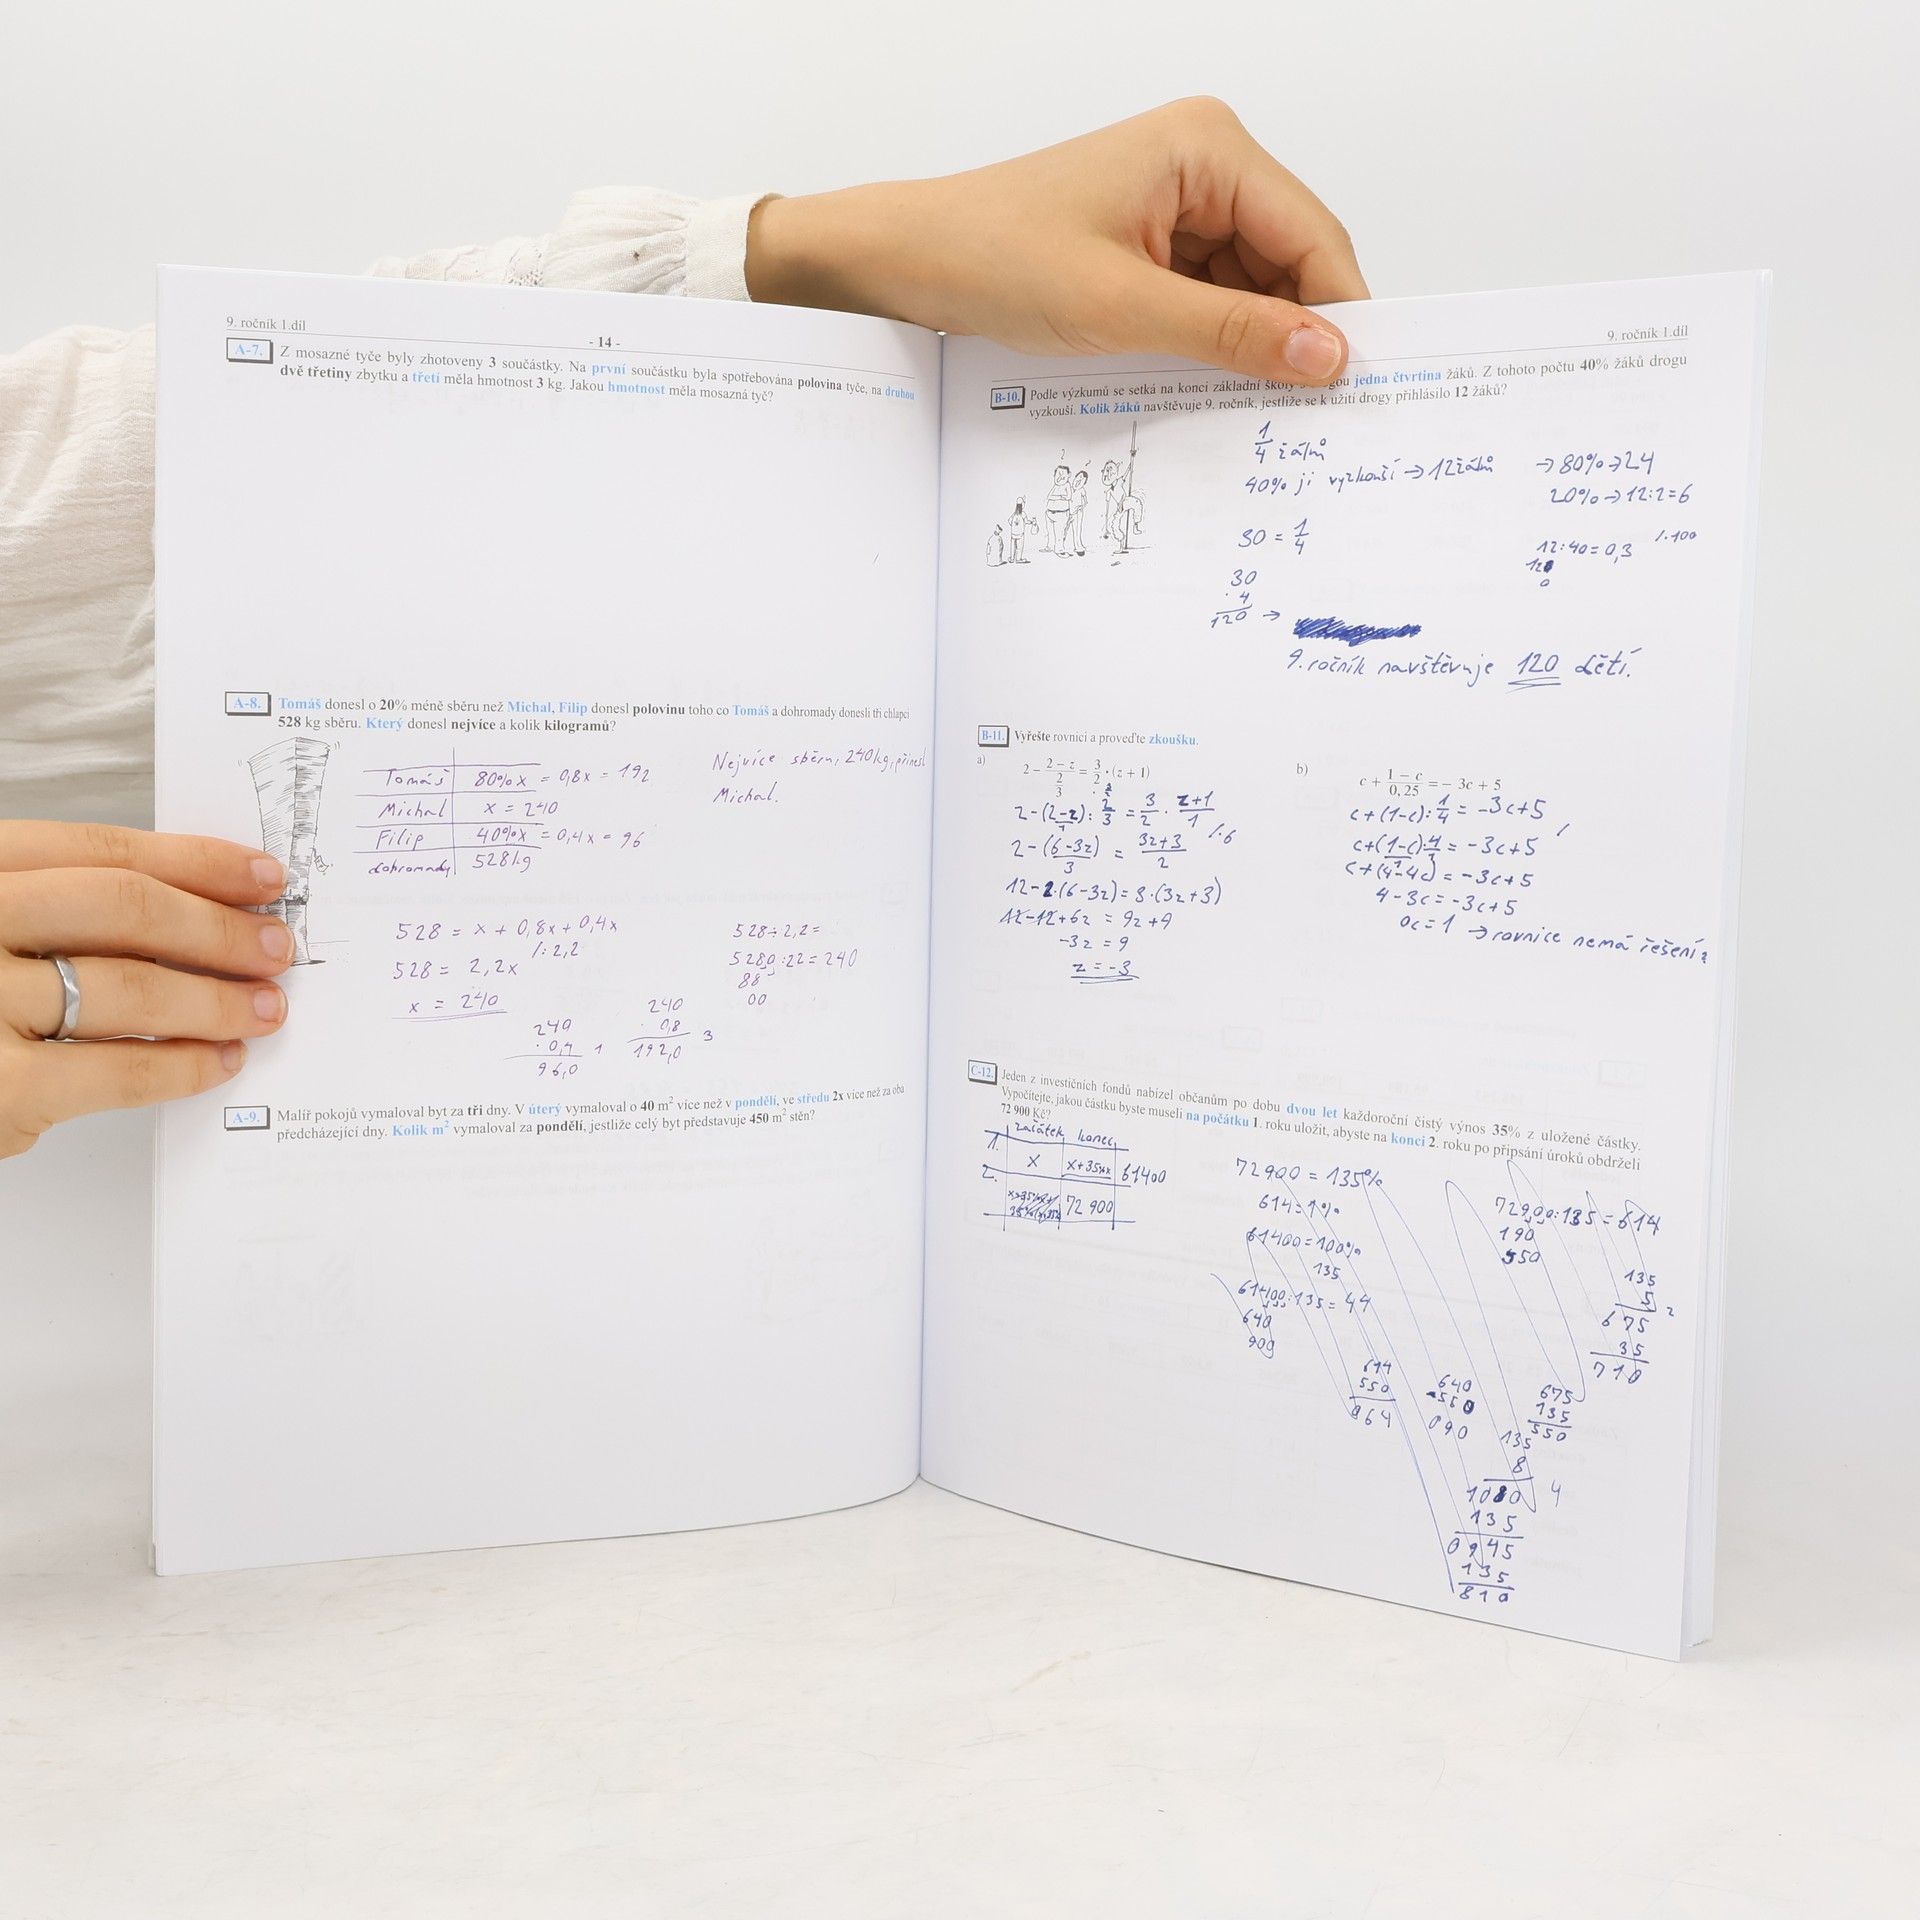 9. ročník 1.díl
- 14 -
A-7. Z mosazné tyče byly zhotoveny 3 součástky. Na první součástku byla spotřebována polovina tyče, na druhou
dvě třetiny zbytku a třetí měla hmotnost 3 kg. Jakou hmotnost měla mosazná tyč?
A-8. Tomáš donesl o 20% méně sběru než Michal, Filip donesl polovinu toho co Tomáš a dohromady donesli tři chlapci
528 kg sběru. Který donesl nejvíce a kolik kilogramů?
Tomáš 80%x = 0,8x = 192
Michal x = 240
Filip 40%x = 0,4x = 96
dohromady 528kg
Nejvíce sběru, 240kg, přinesl
Michal.
528 = x + 0,8x + 0,4x
/:2,2
528 = 2,2x
x = 240
528÷2,2=
5280:22=240
88
00
240
· 0,4 1
96,0
240
· 0,8 3
192,0
A-9. Malíř pokojů vymaloval byt za tři dny. V úterý vymaloval o 40 m² více než v pondělí, ve středu 2x více než za oba
předcházející dny. Kolik m² vymaloval za pondělí, jestliže celý byt představuje 450 m² stěn?
9. ročník 1.díl
B-10. Podle výzkumů se setká na konci základní školy gou jedna čtvrtina žáků. Z tohoto počtu 40% žáků drogu
vyzkouší. Kolik žáků navštěvuje 9. ročník, jestliže se k užití drogy přihlásilo 12 žáků?
1/4 žáků
40% ji vyzkouší → 12 žáků → 80% → 24
20% → 12:2=6
30 = 1/4
12:40=0,3 /·100
120
0
30
· 4
120 →
9. ročník navštěvuje 120 dětí.
B-11. Vyřešte rovnici a proveďte zkoušku.
a) 2 - (2 - z)/(2/3) = 3/2 · (z + 1)
2-(2-z):2/3 = 3/2 · z+1/1
2-(6-3z)/3 = 3z+3/2 /·6
12-2·(6-3z)=3·(3z+3)
12-12+6z = 9z+9
-3z = 9
z = -3
b) c + (1 - c)/0,25 = - 3c + 5
c+(1-c):1/4 = -3c+5
c+(1-c)·4/1 = -3c+5
c+(4-4c) = -3c+5
4-3c = -3c+5
0c = 1 → rovnice nemá řešení
C-12. Jeden z investičních fondů nabízel občanům po dobu dvou let každoroční čistý výnos 35% z uložené částky.
Vypočítejte, jakou částku byste museli na počátku 1. roku uložit, abyste na konci 2. roku po připsání úroků obdrželi
72 900 Kč?
začátek konec
1. x x+35%x 61400
2. 72 900
72900 = 135%
614 = 1%
61400 = 100%
135
61400:135=44
640
900
72900:135=614
190
550
135
5 2
675
35
710
614
550
064
640
-550
090
675
135
550
135
8
1080 4
135
0945
135
810